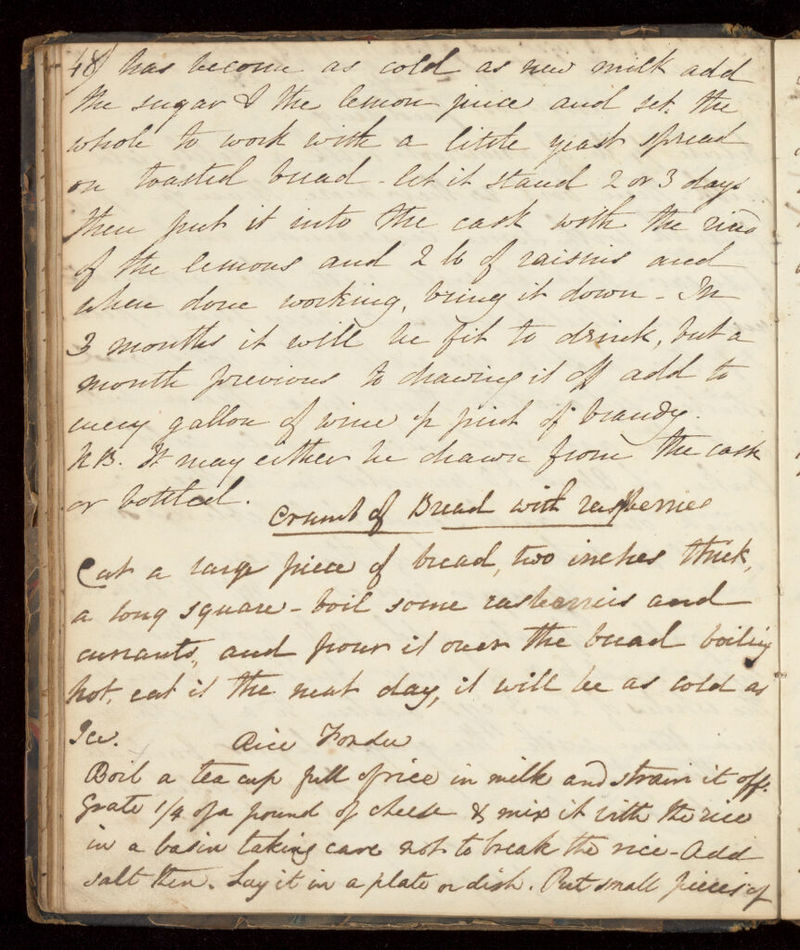 48) has become as cold as new milk add
the sugar & the lemon juice and set the
whole to work with a little yeast spread
on toasted bread - let it stand 2 or 3 days
then put it into the cask with the rind
of the lemons and 2 lb of raisins and
when done working, bung it down - In
3 months it will be fit to drink, but a
month previous to drawing it off add to
every gallon of wine pint of brandy.
NB. It may either be drawn from the cask
or bottled.
Crumb of Bread with rasberries
Cut a large piece of bread, two inches thick,
a long square - boil some rasberries and
currants, and pour it over the bread boiling
hot, eat it the next day, it will be as cold as
Ice.
Rice Fondu
Boil a tea cup full of rice in milk and strain it off.
Grate 1/4 of a pound of cheese & mix it with the rice
in a basin taking care not to break the rice - Add
salt then. Lay it in a plate or dish. Put small pieces of